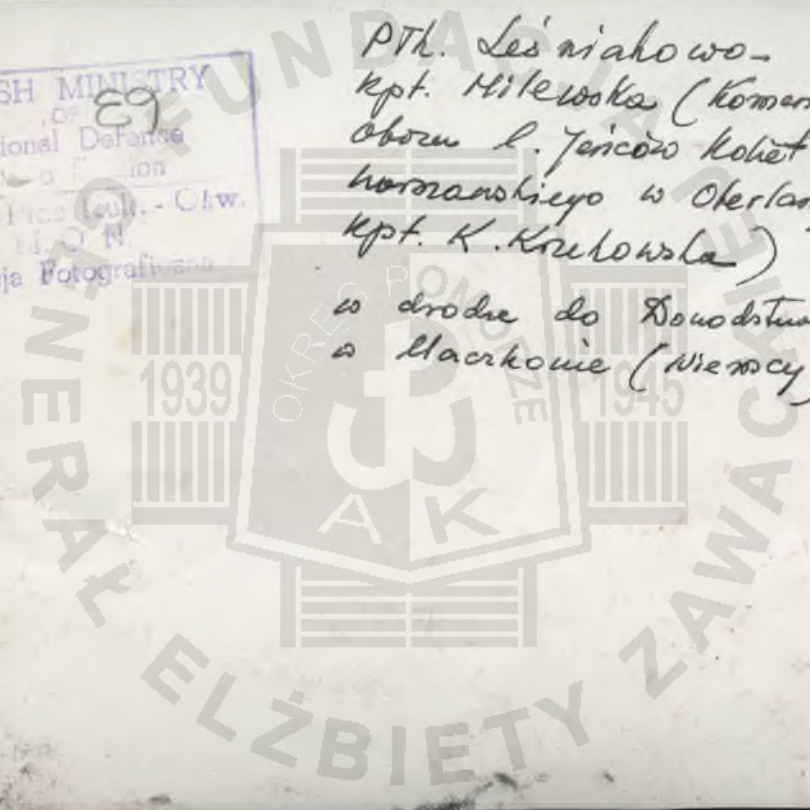 SH MINISTRY
OF
ional Defence
63
Ośw.
M. O. N.
ja Fotograficzna
płk. Leśniakowa-
kpt. Milewska (Komen
Obozu b. Jeńców Kobiet
warszawskiego w Oberlan
kpt. K. Kozukowska)
w drodze do Dowództw
w Maczkowie (Niemcy)
FUNDACJA GENERAŁ ELŻBIETY ZAWACKIEJ
OKRĘG POMORZE
1939
1945
AK